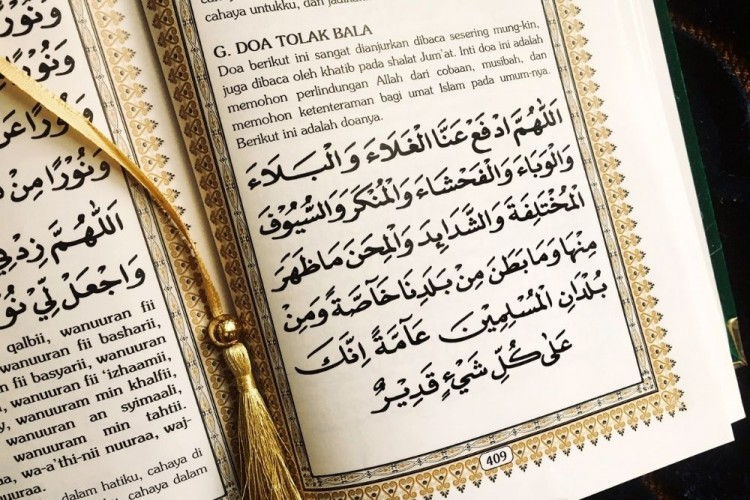 وَنُوْرًا
وَنُوْرًا مِنْ
اَللّٰهُمَّ زِدْنِيْ
وَاجْعَلْ لِّيْ
qalbii, wanuuran fii
wanuuran fii basharii,
fii basyarii, wanuuran
fii 'izhaamii,
wanuuran min khalfii,
wanuuran an syimaali,
wanuuran min tahtii.
wa-a'thi-nii nuuraa, waj-
dalam hatiku, cahaya di
cahaya dalam
cahaya untukku, dan
G. DOA TOLAK BALA
Doa berikut ini sangat dianjurkan dibaca sesering mung-kin,
juga dibaca oleh khatib pada shalat Jum'at. Inti doa ini adalah
memohon perlindungan Allah dari cobaan, musibah, dan
memohon ketenteraman bagi umat Islam pada umum-nya.
Berikut ini adalah doanya.
اَللّٰهُمَّ ادْفَعْ عَنَّا الْغَلَاءَ وَالْبَلَاءَ
وَالْوَبَاءَ وَالْفَحْشَاءَ وَالْمُنْكَرَ وَالسُّيُوْفَ
الْمُخْتَلِفَةَ وَالشَّدَايِدَ وَالْمِحَنَ مَاظَهَرَ
مِنْهَا وَمَا بَطَنَ مِنْ بَلَدِنَا خَآصَّةً وَمِنْ
بُلْدَانِ الْمُسْلِمِيْنَ عَآمَةً اِنَّكَ
عَلٰى كُلِّ شَيْءٍ قَدِيْرٌ
409